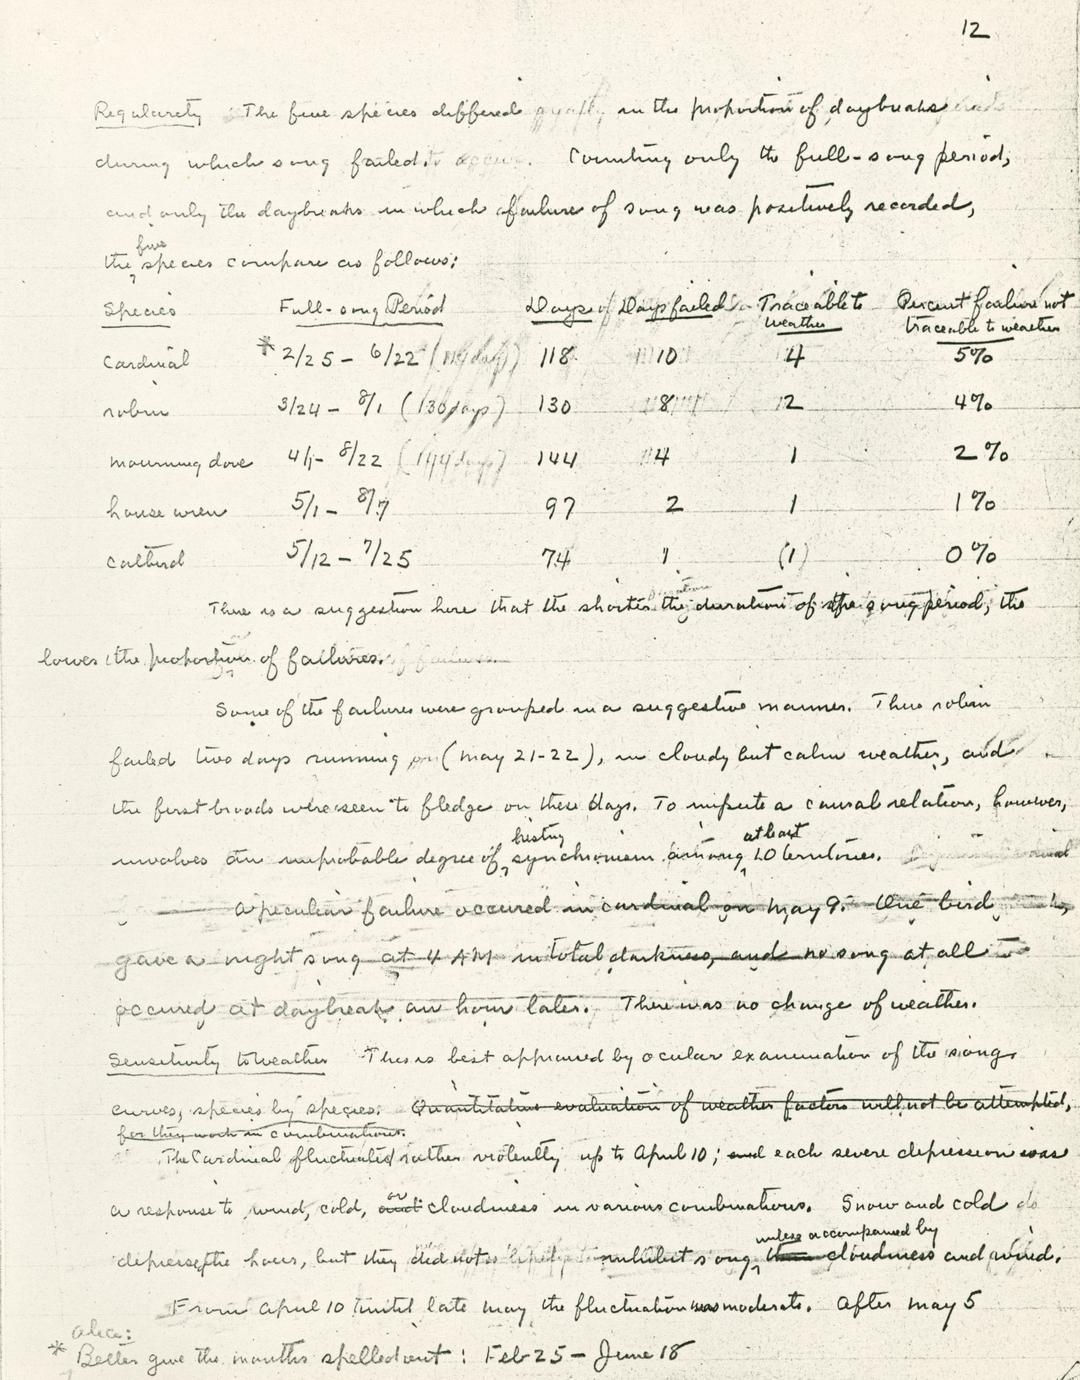 12
Regularity The five species differed in the proportion of daybreaks
during which song failed. Counting only the full-song period,
and only the daybreaks in which failure of song was positively recorded,
five
the species compare as follows:
Species Full-song Period Days of Days failed Traceable to weather Percent failure not traceable to weather
Cardinal *2/25 - 6/22 118 10 4 5%
robin 3/24 - 8/1 (130 days) 130 8 2 4%
mourning dove 4/1- 8/22 (144 days) 144 4 1 2%
house wren 5/1 - 8/7 97 2 1 1%
catbird 5/12 - 7/25 74 1 (1) 0%
There is a suggestion here that the shorter the duration of the song period, the
lower the proportion of failures.
Some of the failures were grouped in a suggestive manner. Thus robin
failed two days running (May 21-22), in cloudy but calm weather, and
the first broods were seen to fledge on these days. To impute a causal relation, however,
nesting at least
involves an improbable degree of synchronism among 10 territories.
A peculiar failure occured in cardinal on May 9. One bird
gave a night song at 4 AM in total darkness, and no song at all
occured at daybreak an hour later. There was no change of weather.
Sensitivity to Weather This is best appraised by ocular examination of the song
curves, species by species. Quantitative evaluation of weather factors will not be attempted,
for they work in combinations.
The Cardinal fluctuated rather violently up to April 10; and each severe depression was
or
a response to wind, cold, and cloudiness in various combinations. Snow and cold do
unless accompanied by
depress the hour, but they did not inhibit song cloudiness and wind.
From April 10 until late May the fluctuation was moderate. After May 5
Alice:
* Better give the months spelled out: Feb 25 - June 18